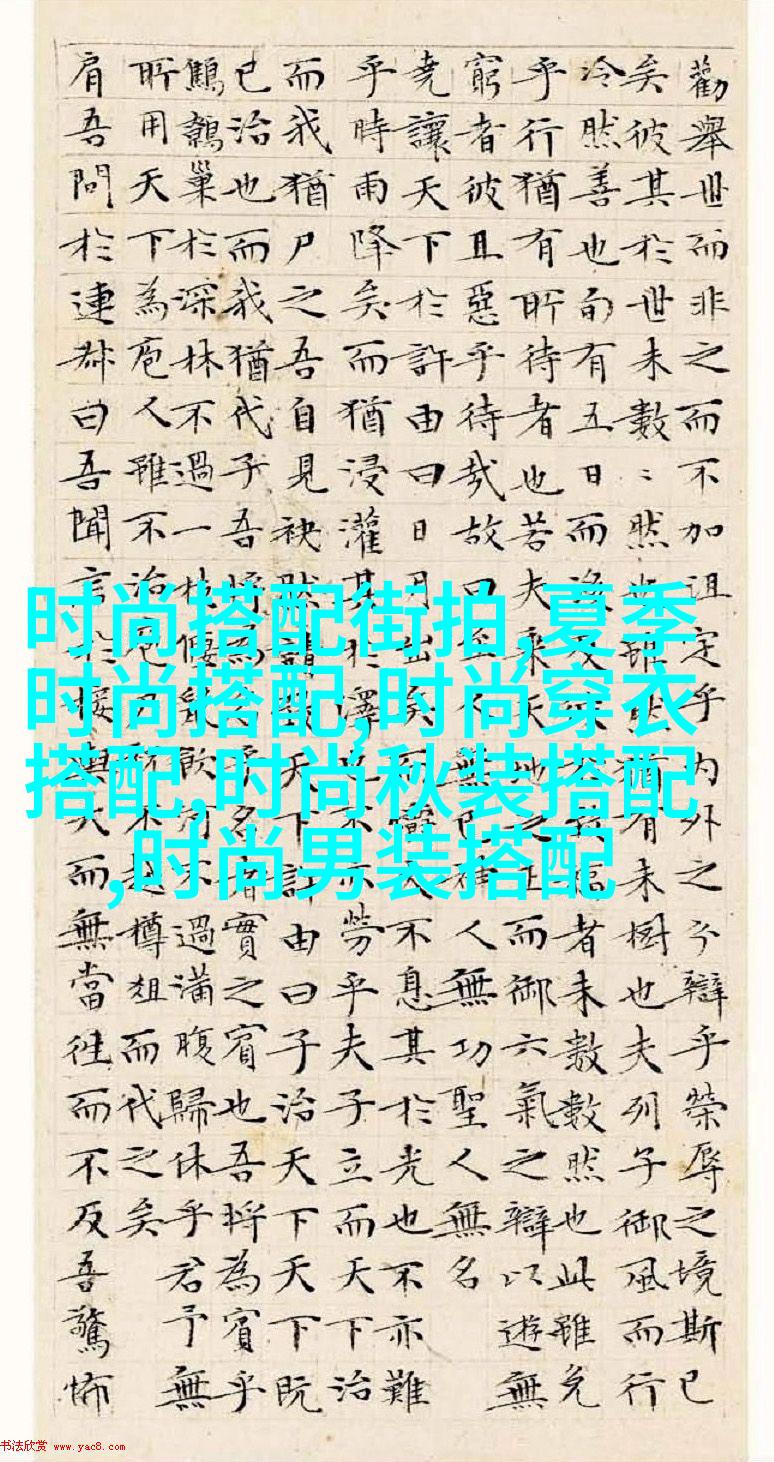 勸舉世而非之而不加沮定乎內外之分辯乎榮辱之境斯已
矣彼其於世未數〻然也雖然猶有未樹也夫列子御風而行
冷然善也旬有五日而後反彼於致福者未數數然也此雖免
乎行猶有所待者也若夫乘天地之正而御六氣之辯以遊無
窮者彼且惡乎待哉故曰至人無己神人無功聖人無名
堯讓天下於許由曰日月出矣而爝火不息其於光也不亦難
乎時雨降矣而猶浸灌其於澤也不亦勞乎夫子立而天下治
而我猶尸之吾自見缺然請致天下許由曰子治天下天下既
已治也而我猶代子吾將為名乎名者實之賓也吾將為賓乎
鷦鷯巢於深林不過一枝偃鼠飲河不過滿腹歸休乎君予無
所用天下為庖人雖不治庖尸祝不越樽俎而代之矣
肩吾問於連叔曰吾聞言於接輿大而無當往而不反吾驚怖
时尚搭配街拍,夏季
时尚搭配,时尚穿衣
搭配,时尚秋装搭配
,时尚男装搭配
书法欣赏 www.yac8.com